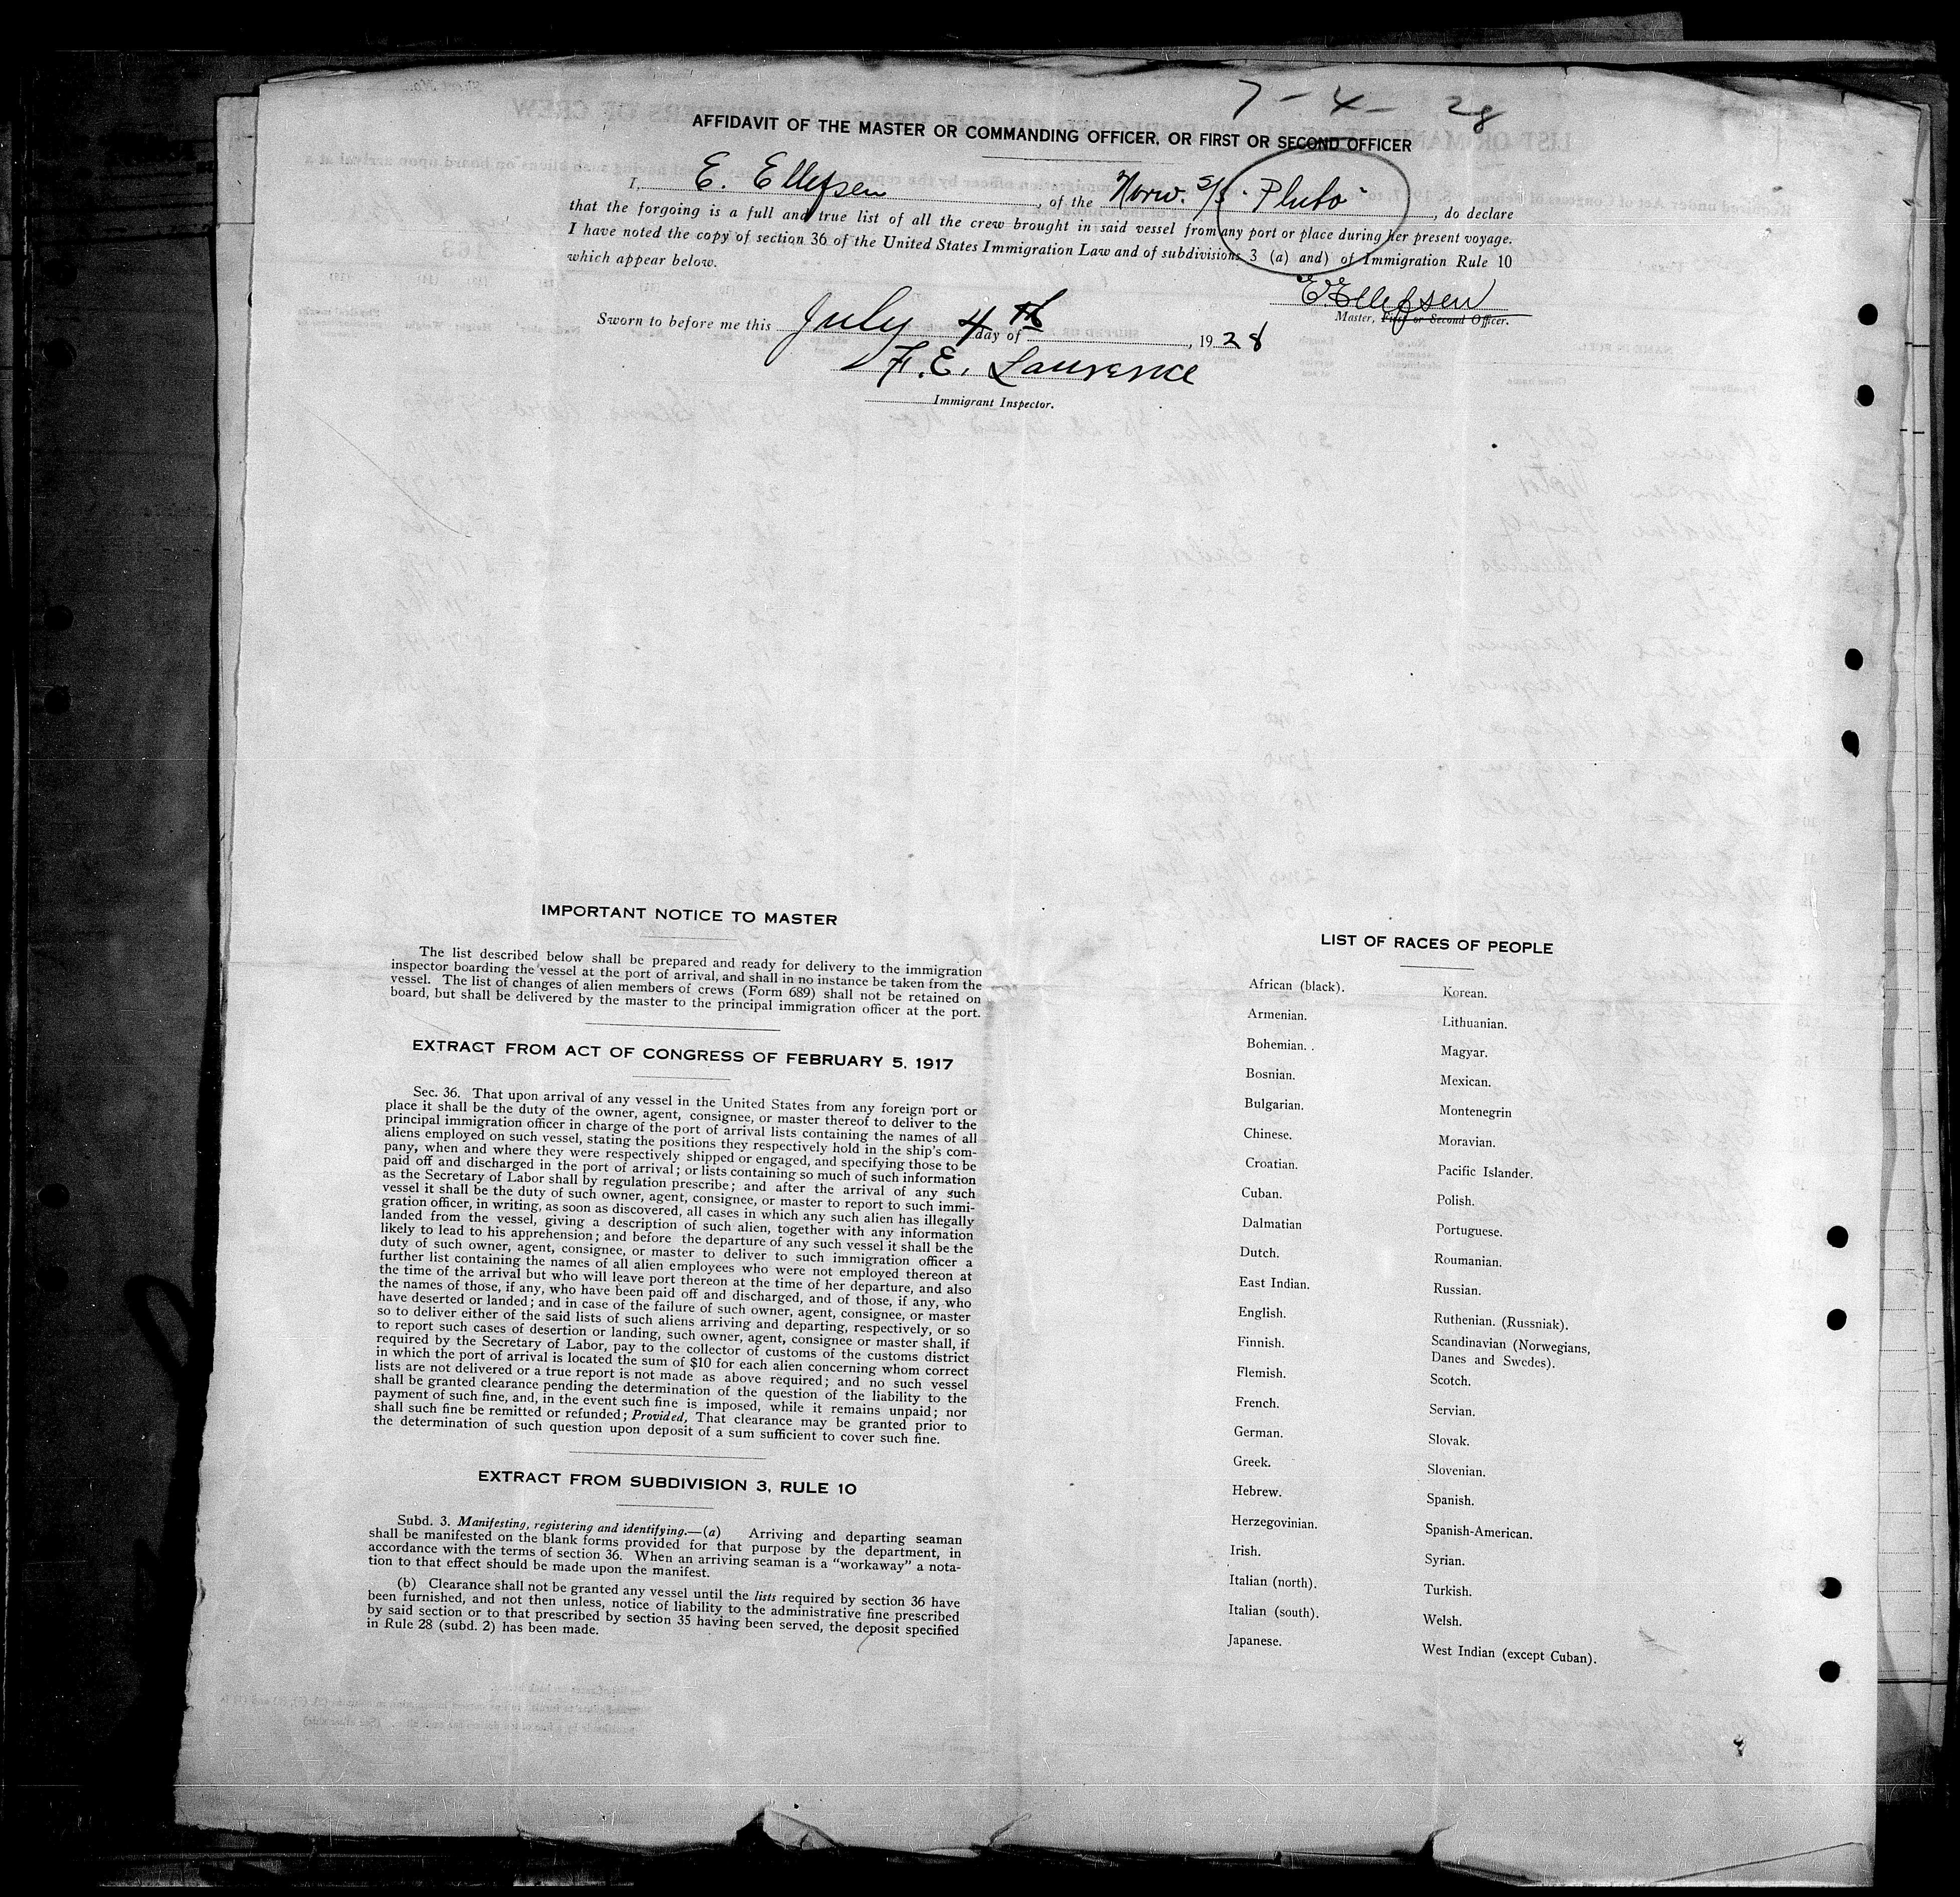 7-4-28
AFFIDAVIT OF THE MASTER OR COMMANDING OFFICER, OR FIRST OR SECOND OFFICER
I, E. Ellefsen, of the Norw. S/S "Pluto", do declare
that the forgoing is a full and true list of all the crew brought in said vessel from any port or place during her present voyage.
I have noted the copy of section 36 of the United States Immigration Law and of subdivisions 3 (a) and) of Immigration Rule 10
which appear below.
E. Ellefsen
Master, First or Second Officer.
Sworn to before me this July 4th day of , 1928
F. E. Lawrence
Immigrant Inspector.
IMPORTANT NOTICE TO MASTER
The list described below shall be prepared and ready for delivery to the immigration
inspector boarding the vessel at the port of arrival, and shall in no instance be taken from the
vessel. The list of changes of alien members of crews (Form 689) shall not be retained on
board, but shall be delivered by the master to the principal immigration officer at the port.
EXTRACT FROM ACT OF CONGRESS OF FEBRUARY 5, 1917
Sec. 36. That upon arrival of any vessel in the United States from any foreign port or
place it shall be the duty of the owner, agent, consignee, or master thereof to deliver to the
principal immigration officer in charge of the port of arrival lists containing the names of all
aliens employed on such vessel, stating the positions they respectively hold in the ship's com-
pany, when and where they were respectively shipped or engaged, and specifying those to be
paid off and discharged in the port of arrival; or lists containing so much of such information
as the Secretary of Labor shall by regulation prescribe; and after the arrival of any such
vessel it shall be the duty of such owner, agent, consignee, or master to report to such immi-
gration officer, in writing, as soon as discovered, all cases in which any such alien has illegally
landed from the vessel, giving a description of such alien, together with any information
likely to lead to his apprehension; and before the departure of any such vessel it shall be the
duty of such owner, agent, consignee, or master to deliver to such immigration officer a
further list containing the names of all alien employees who were not employed thereon at
the time of the arrival but who will leave port thereon at the time of her departure, and also
the names of those, if any, who have been paid off and discharged, and of those, if any, who
have deserted or landed; and in case of the failure of such owner, agent, consignee, or master
so to deliver either of the said lists of such aliens arriving and departing, respectively, or so
to report such cases of desertion or landing, such owner, agent, consignee or master shall, if
required by the Secretary of Labor, pay to the collector of customs of the customs district
in which the port of arrival is located the sum of $10 for each alien concerning whom correct
lists are not delivered or a true report is not made as above required; and no such vessel
shall be granted clearance pending the determination of the question of the liability to the
payment of such fine, and, in the event such fine is imposed, while it remains unpaid; nor
shall such fine be remitted or refunded; Provided, That clearance may be granted prior to
the determination of such question upon deposit of a sum sufficient to cover such fine.
EXTRACT FROM SUBDIVISION 3, RULE 10
Subd. 3. Manifesting, registering and identifying.—(a) Arriving and departing seaman
shall be manifested on the blank forms provided for that purpose by the department, in
accordance with the terms of section 36. When an arriving seaman is a "workaway" a nota-
tion to that effect should be made upon the manifest.
(b) Clearance shall not be granted any vessel until the lists required by section 36 have
been furnished, and not then unless, notice of liability to the administrative fine prescribed
by said section or to that prescribed by section 35 having been served, the deposit specified
in Rule 28 (subd. 2) has been made.
LIST OF RACES OF PEOPLE
African (black).
Armenian.
Bohemian.
Bosnian.
Bulgarian.
Chinese.
Croatian.
Cuban.
Dalmatian
Dutch.
East Indian.
English.
Finnish.
Flemish.
French.
German.
Greek.
Hebrew.
Herzegovinian.
Irish.
Italian (north).
Italian (south).
Japanese.
Korean.
Lithuanian.
Magyar.
Mexican.
Montenegrin
Moravian.
Pacific Islander.
Polish.
Portuguese.
Roumanian.
Russian.
Ruthenian. (Russniak).
Scandinavian (Norwegians,
Danes and Swedes).
Scotch.
Servian.
Slovak.
Slovenian.
Spanish.
Spanish-American.
Syrian.
Turkish.
Welsh.
West Indian (except Cuban).